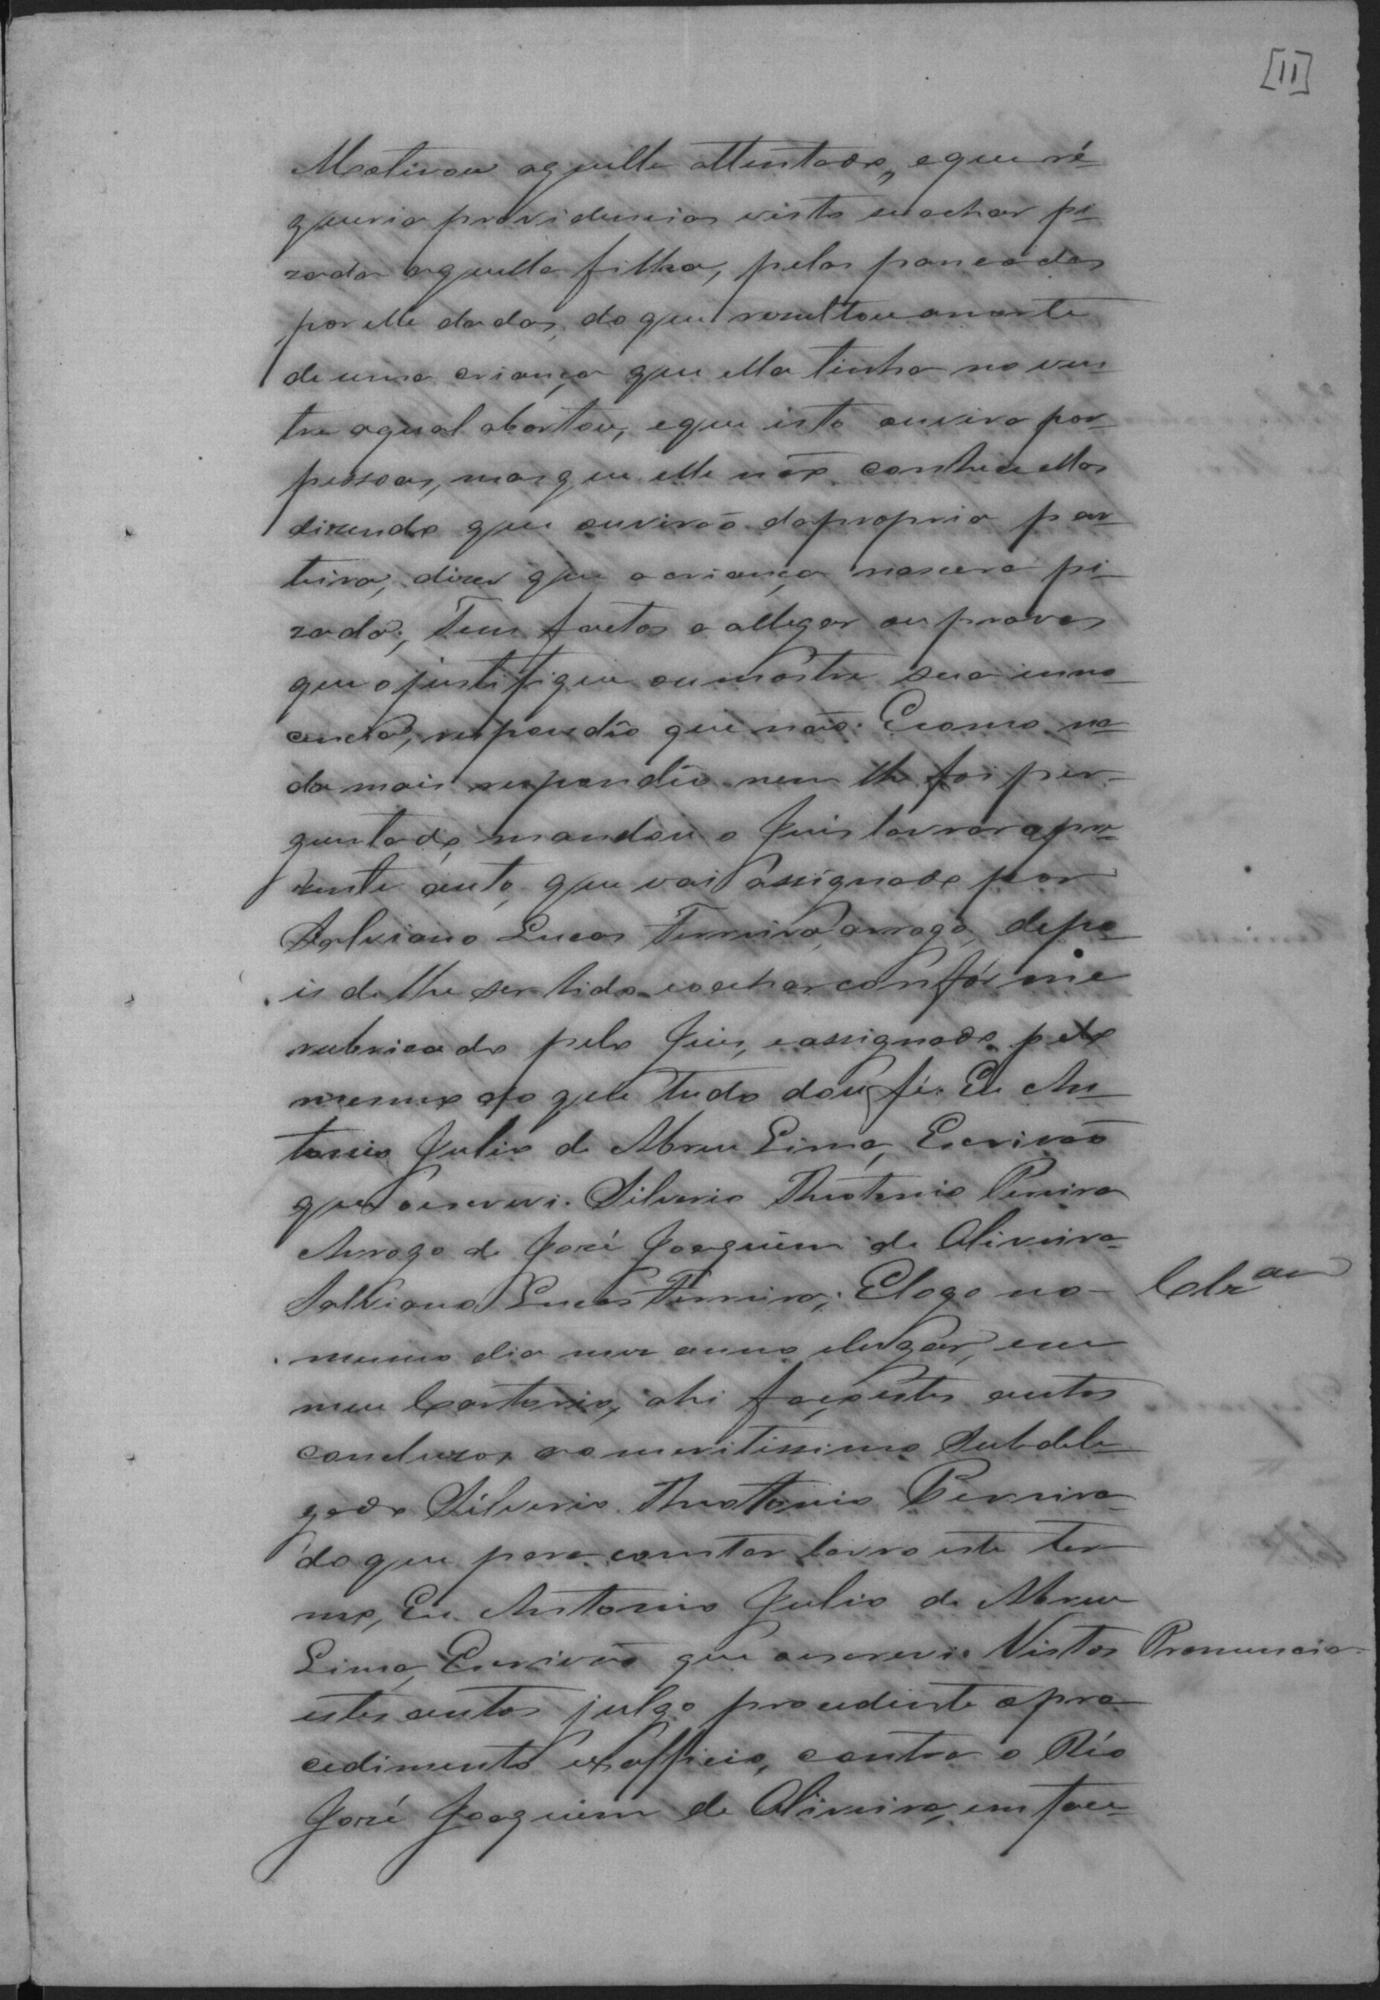 [11]
Motivou aquelle attentado, e que ré-
queria providencias visto se achar pi-
zada aquella filha, pelas pancadas
por elle dadas, do que rezultou a morte
de uma criança que ella tinha no ven-
tre a qual abortou, e que isto ouvira por
pessoas, mas que elle não conhece ellas
dizendo que ouvirão da propria par-
teira, dizer que a criança nascera pi-
zada; Tem factos a allegar ou provas
que o justifique ou mostre sua inno-
cencia, respondeo que não. E como na-
da mais respondeo nem lhe foi per-
guntado, mandou o Juis lavrar o pre-
zente auto, que vai assignado por
Salviano Lucas Ferreira, arrogo, depo-
is de lhe ser lido e achar confórme
rubricado pelo Juis, e assignado pelo
mesmo do que tudo dou fé. Eu An-
tonio Julio de Abreu Lima, Escrivão
que o escrevi. Silverio Theotonio Pereira
Arrogo de José Joaquim de Oliveira
Salviano Lucas Ferreira; E logo no Clz.am
mesmo dia mez anno e lugar, em
meu Cartorio, ahi faço estes autos
concluzos ao meritissimo Subdele-
gado Silverio Theotonio Pereira
do que para constar lavro este ter-
mo, Eu Antonio Julio de Abreu
Lima, Escrivão que o escrevi. Vistos Pronuncia
estes autos julgo procedente o pro-
cedimento ex officio, contra o Réo
José Joaquim de Oliveira, em face